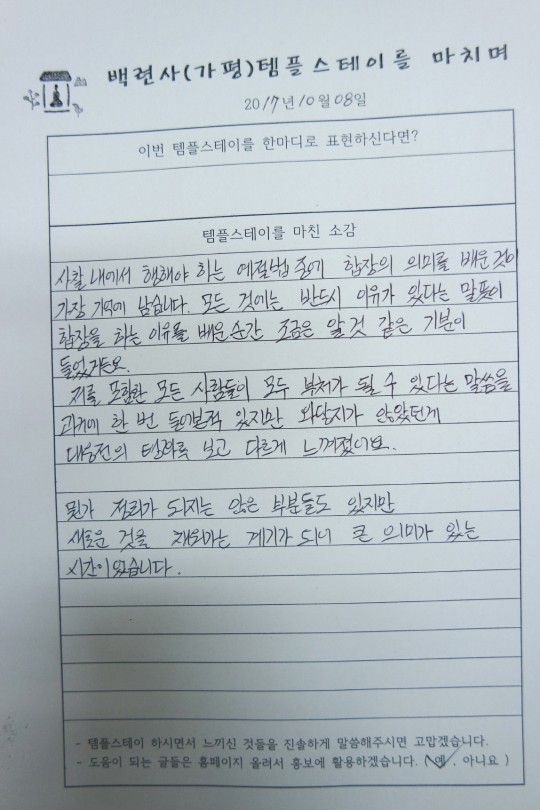 백련사(가평)템플스테이를 마치며
2017년 10월 08일
이번 템플스테이를 한마디로 표현하신다면?
템플스테이를 마친 소감
사찰 내에서 행해야 하는 예절법 중에 합장의 의미를 배운 것이
가장 기억에 남습니다. 모든 것에는 반드시 이유가 있다는 말뜻이
합장을 하는 이유를 배운 순간 조금은 알 것 같은 기분이
들었거든요.
저를 포함한 모든 사람들이 모두 부처가 될 수 있다는 말씀을
과거에 한 번 들어본적 있지만 와닿지가 않았던게
대웅전의 탱화를 보고 다르게 느껴졌어요.
뭔가 정리가 되지는 않은 부분들도 있지만
새로운 것을 채워가는 계기가 되니 큰 의미가 있는
시간이었습니다.
- 템플스테이 하시면서 느끼신 것들을 진솔하게 말씀해주시면 고맙겠습니다.
- 도움이 되는 글들은 홈페이지 올려서 홍보에 활용하겠습니다. ( 예 , 아니요 )